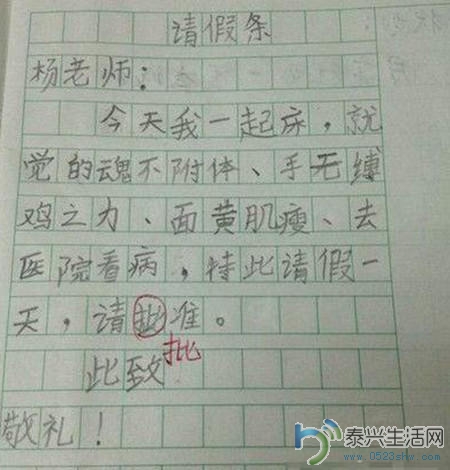 请假条
杨老师：
今天我一起床，就
觉的魂不附体、手无缚
鸡之力、面黄肌瘦、去
医院看病，特此请假一
天，请批准。
批
此致
敬礼！
泰兴生活网
www.0523shw.com